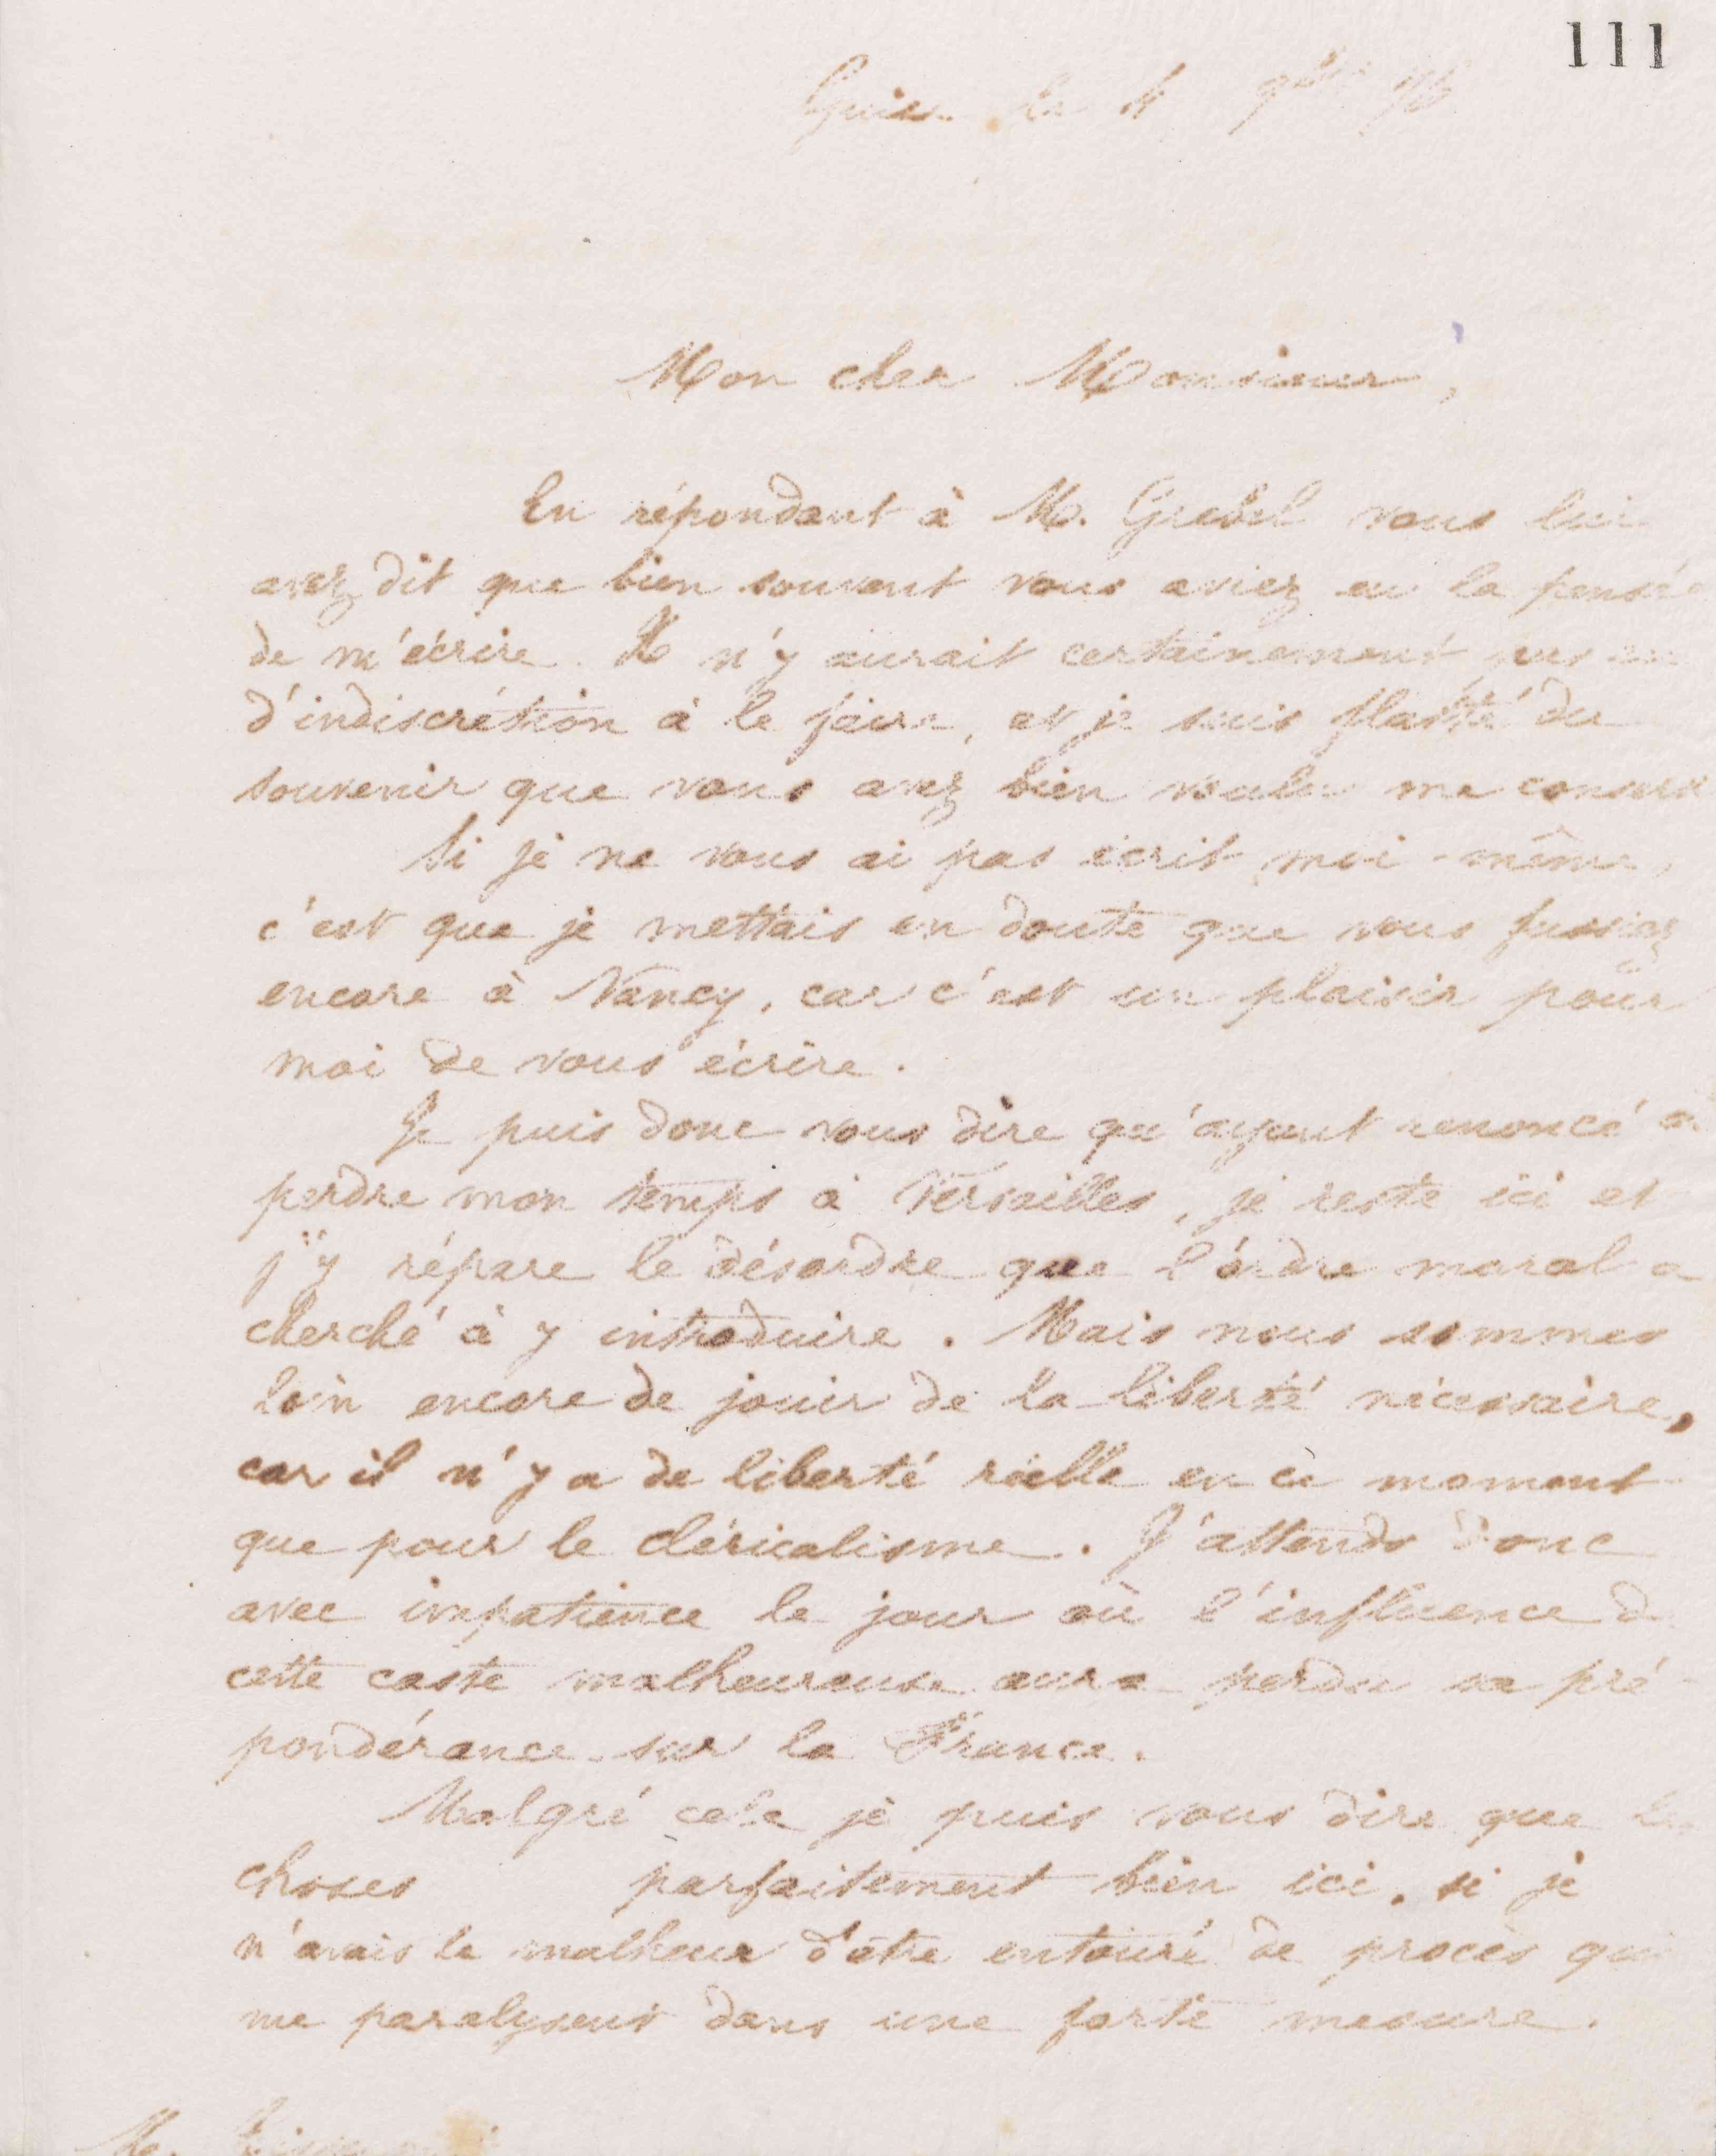 111
Guise le 4 9bre 76
Mon cher Monsieur,
En répondant à M. Grebel vous lui
avez dit que bien souvent vous aviez eu la pensée
de m'écrire. Il n'y aurait certainement pas eu
d'indiscrétion à le faire, et je suis flatté du
souvenir que vous avez bien voulu me conser
Si je ne vous ai pas écrit moi-même,
c'est que je mettais en doute que vous fussiez
encore à Nancy, car c'est un plaisir pour
moi de vous écrire.
Je puis donc vous dire qu'ayant renoncé à
perdre mon temps à Versailles, je reste ici et
j'y répare le désordre que l'ordre moral a
cherché à y introduire. Mais nous sommes
loin encore de jouir de la liberté nécessaire,
car il n'y a de liberté réelle en ce moment
que pour le cléricalisme. J'attends donc
avec impatience le jour où l'influence d
cette caste malheureuse aura perdu sa pré-
pondérance sur la France.
Malgré cela je puis vous dire que les
choses parfaitement bien ici, si je
n'avais le malheur d'être entouré de procès qui
me paralysent dans une forte mesure.
M.